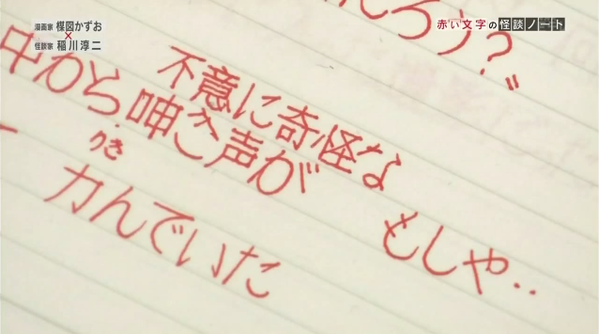 漫画家 楳図かずお
×
怪談家 稲川淳二
赤い文字の怪談ノート
だろう?〃
不意に奇怪な
中から呻く声が
りき
力んでいた
もしや‥